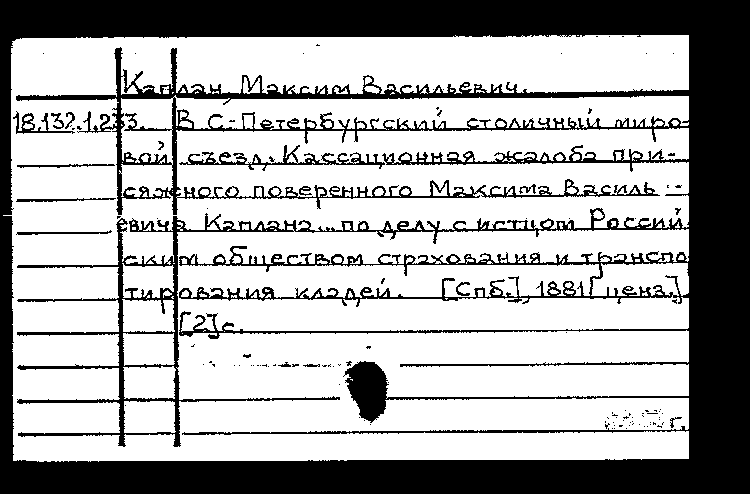 Каплан, Максим Васильевич.
18.132.1.233. В С.-Петербургский столичный миро-
вой съезд. Кассационная жалоба при-
сяжного поверенного Максима Василь-
евича Каплана... по делу с истцом Россий
ским обществом страхования и транспо
тирования кладей. [Спб.], 1881 [ценз.]
[2] с.
г.